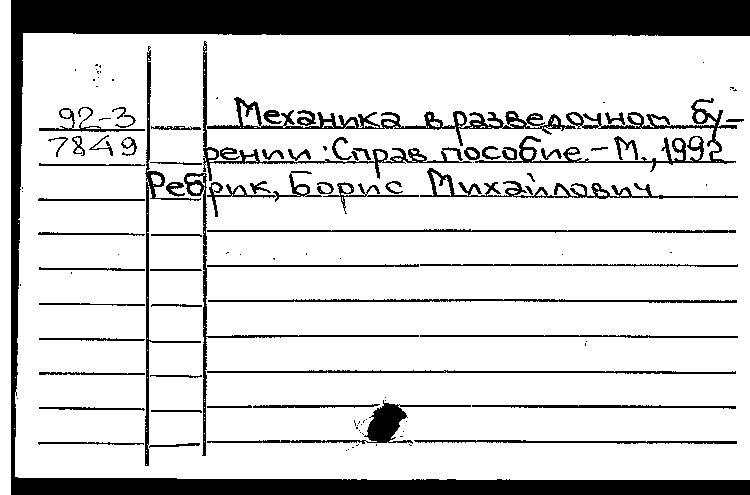 92-3 Механика в разведочном бу-
7849 рении: Справ. пособие.-М., 1992
Ребрик, Борис Михайлович.